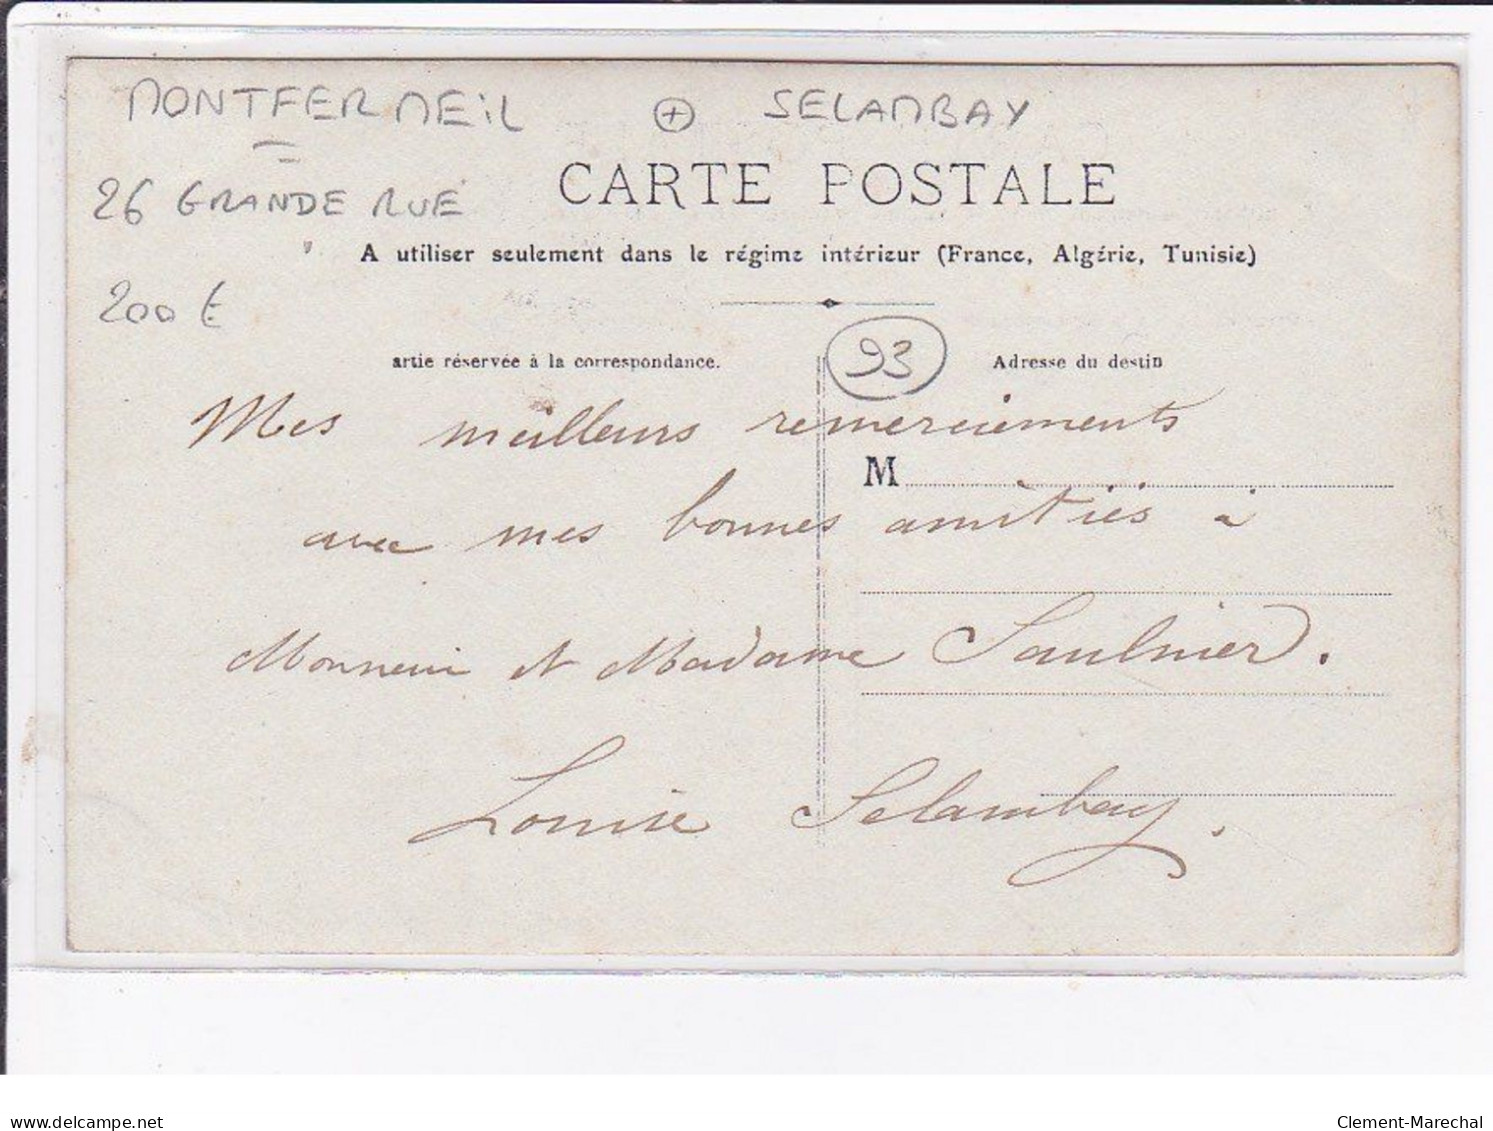 MONTFERMEIL + SELAMBAY
CARTE POSTALE
26 GRANDE RUE
A utiliser seulement dans le régime intérieur (France, Algérie, Tunisie)
200 €
93
artie réservée à la correspondance.
Adresse du destin
Mes meilleurs remerciements
M
avec mes bonnes amitiés à
Monsieur et Madame Saulnier.
Louise Selambay.
delcampe.net
Clement-Marechal